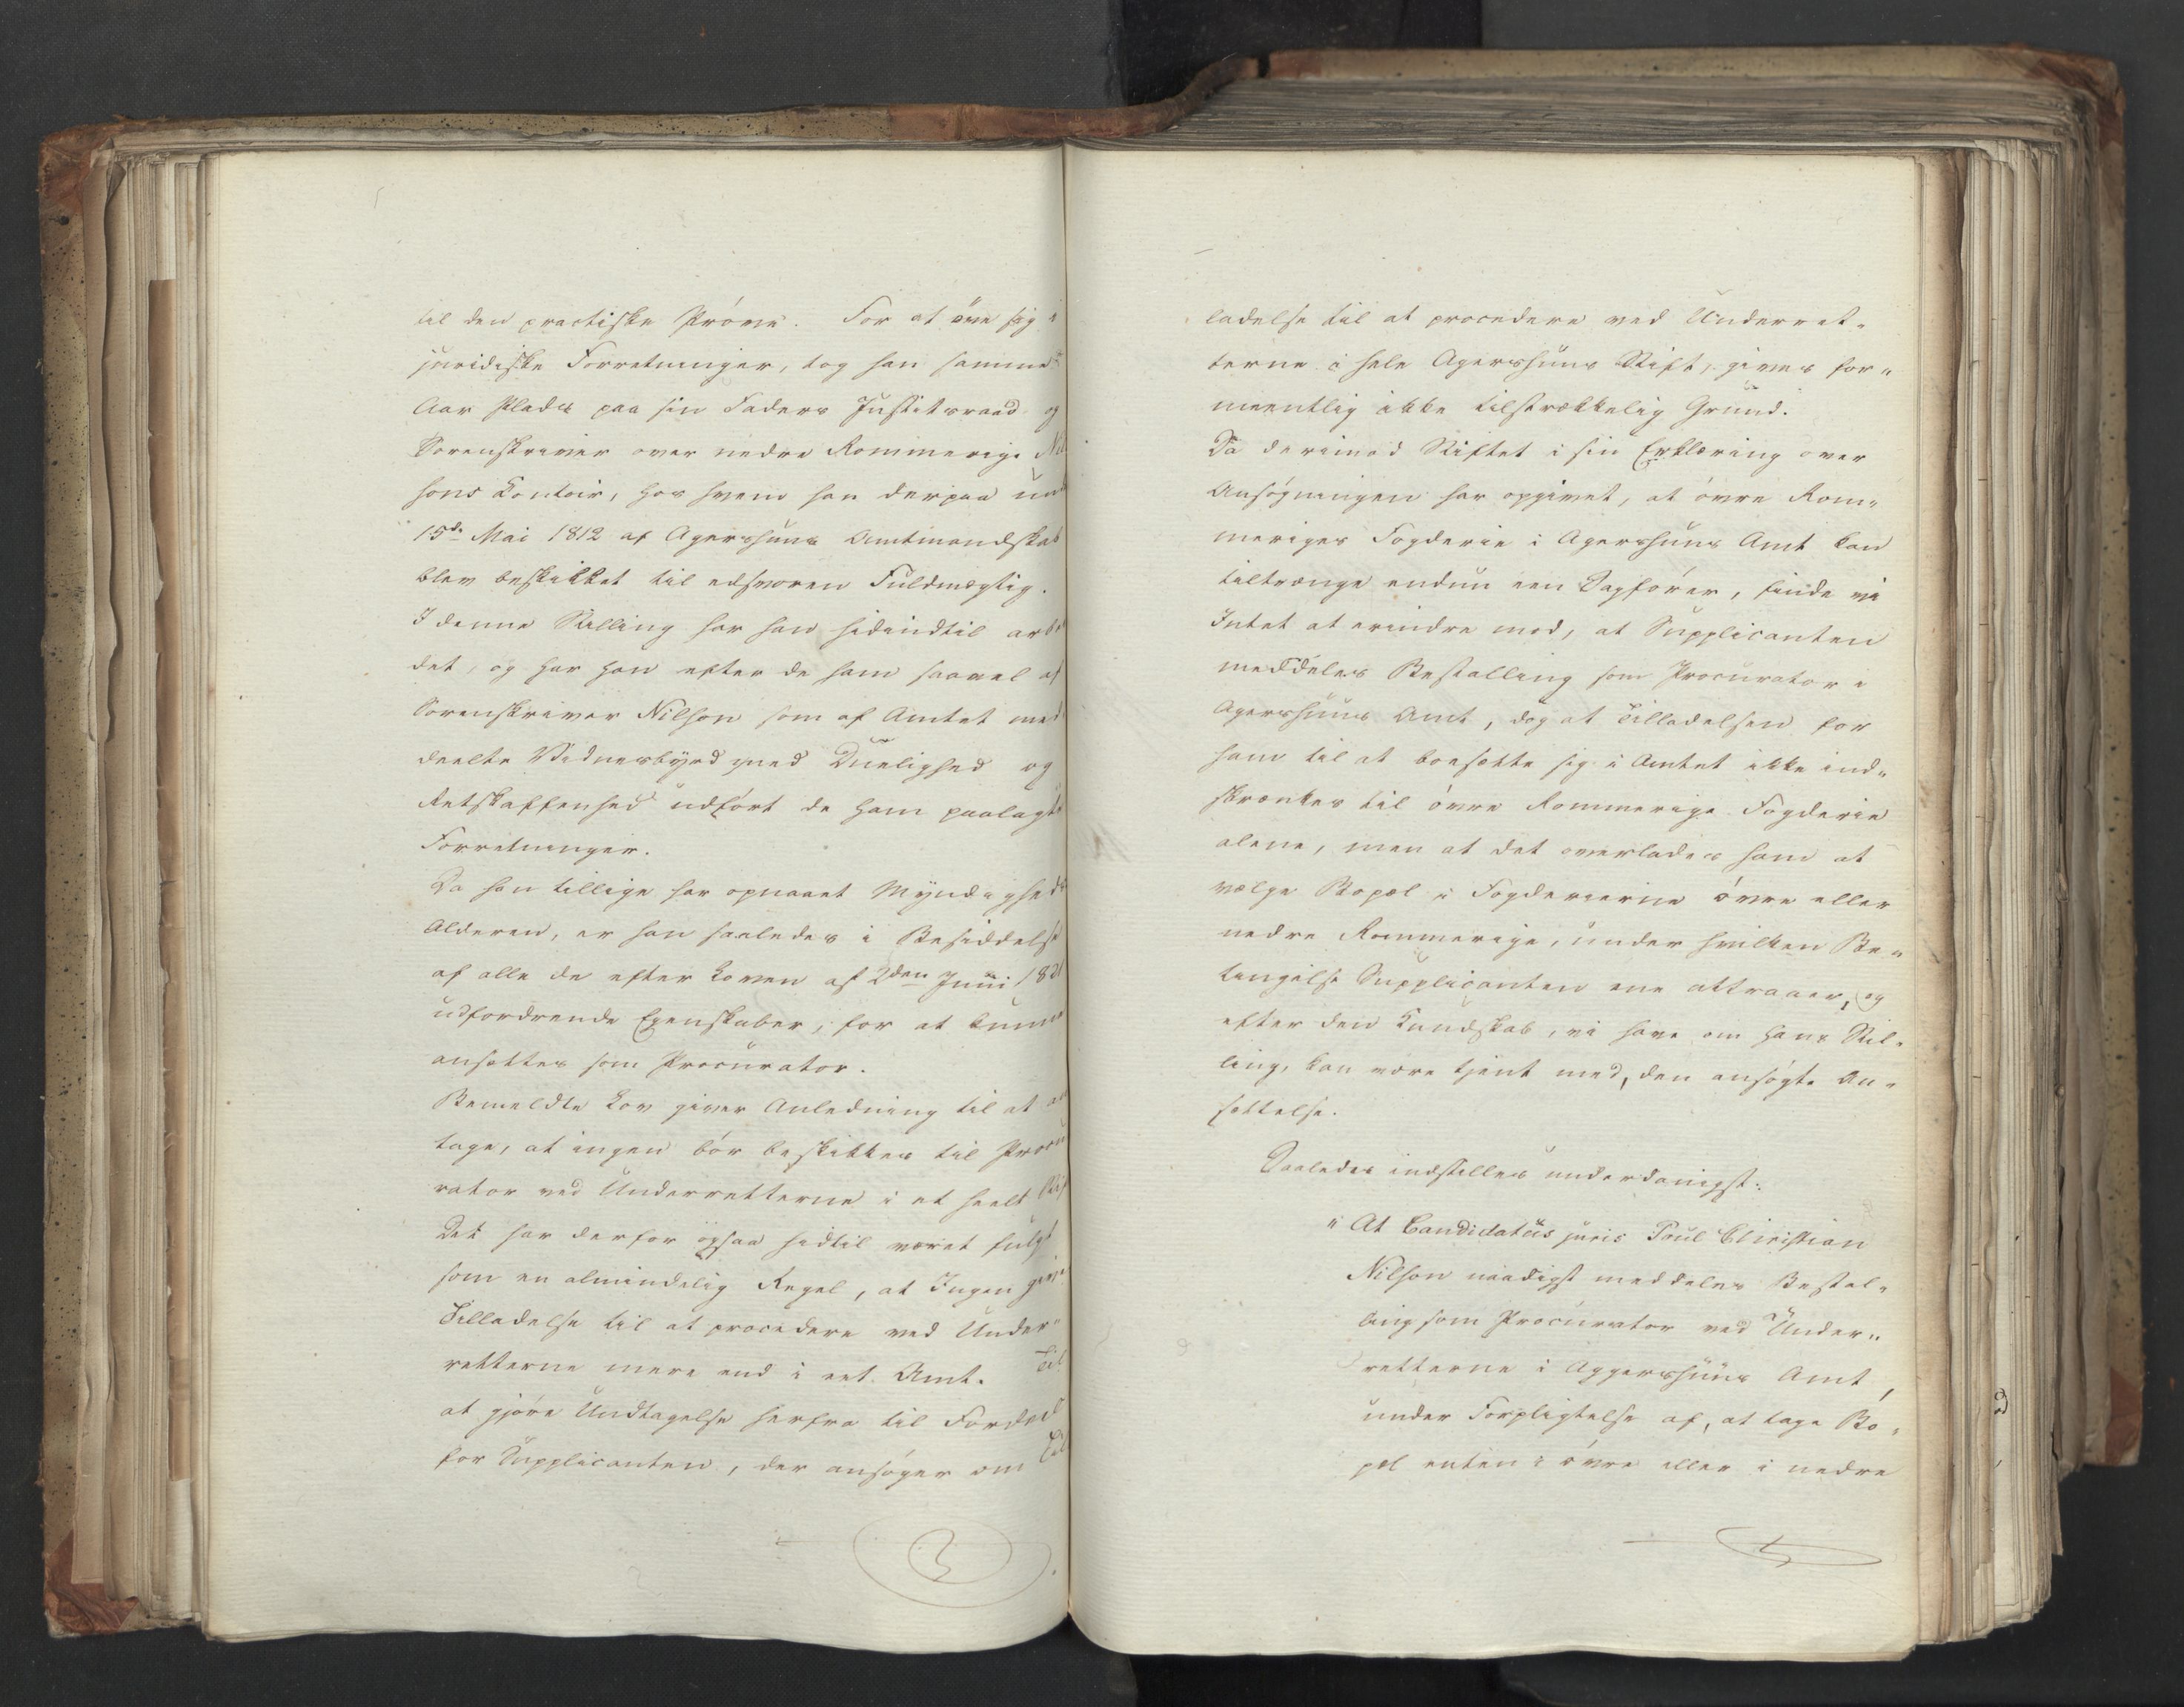 til den practiske Prøve. For at øve sig i
juridiske Forretninger, tog han samme
Aar Plads paa sin Faders Justitsraad og
Sorenskriver over nedre Rommerige Nil
sons Contoir, hos hvem han derpaa un
15de Mai 1812 af Agershuus Amtmandskab
blev beskikket til edsvoren Fuldmægtig.
I denne Stilling har han hidindtil arbei
det, og har han efter de ham saavel af
Sorenskriver Nilson som af Amtet med
deelte Vidnesbyrd med Duelighed og
Retskaffenhed udført de ham paalagte
Forretninger.
Da han tillige har opnaaet Myndigheds
Alderen, er han saaledes i Besiddelse
af alle de efter Loven af 2den Juni 1821
udfordrende Egenskaber, for at kunne
ansættes som Procurator.
Bemeldte Lov giver Anledning til at an
tage, at ingen bør beskikkes til Procu
rator ved Underretterne i et heelt Stif
Det har derfor ogsaa hidtil været fulgt
som en almindelig Regel, at Ingen gives
Tilladelse til at procedere ved Under"
retterne mere end i eet Amt. Til
at gjøre Undtagelse herfra til Fordeel
for Supplicanten, der ansøger om Til
ladelse til at procedere ved Underret"
terne i hele Agershuus Stift, gives for"
meentlig ikke tilstrækkelig Grund.
Da derimod Stiftet i sin Erklæring over
Ansøgningen har opgivet, at øvre Rom"
meriges Fogderie i Agershuus Amt kan
tiltrænge endnu een Sagfører, finde vi
Intet at erindre mod, at Supplicanten
meddeles Bestalling som Procurator i
Agershuus Amt, dog at Tilladelsen for
ham til at boesætte sig i Amtet ikke ind"
skrænkes til øvre Rommerige Fogderie
alene, men at det overlades ham at
vælge Bopæl i Fogderierne øvre eller
nedre Rommerige, under hvilken Be"
tingelse Supplicanten ene attraaer, og
efter den Kundskab, vi have om hans Stil"
ling, kan være tjent med, den ansøgte An"
sættelse.
Saaledes indstilles underdanigst:
"At Candidatus juris Poul Christian
Nilson naadigst meddeles Bestal"
ling som Procurator ved Under"
retterne i Aggershuus Amt,
under Forpligtelse af, at tage Bo"
pæl enten i øvre eller i nedre